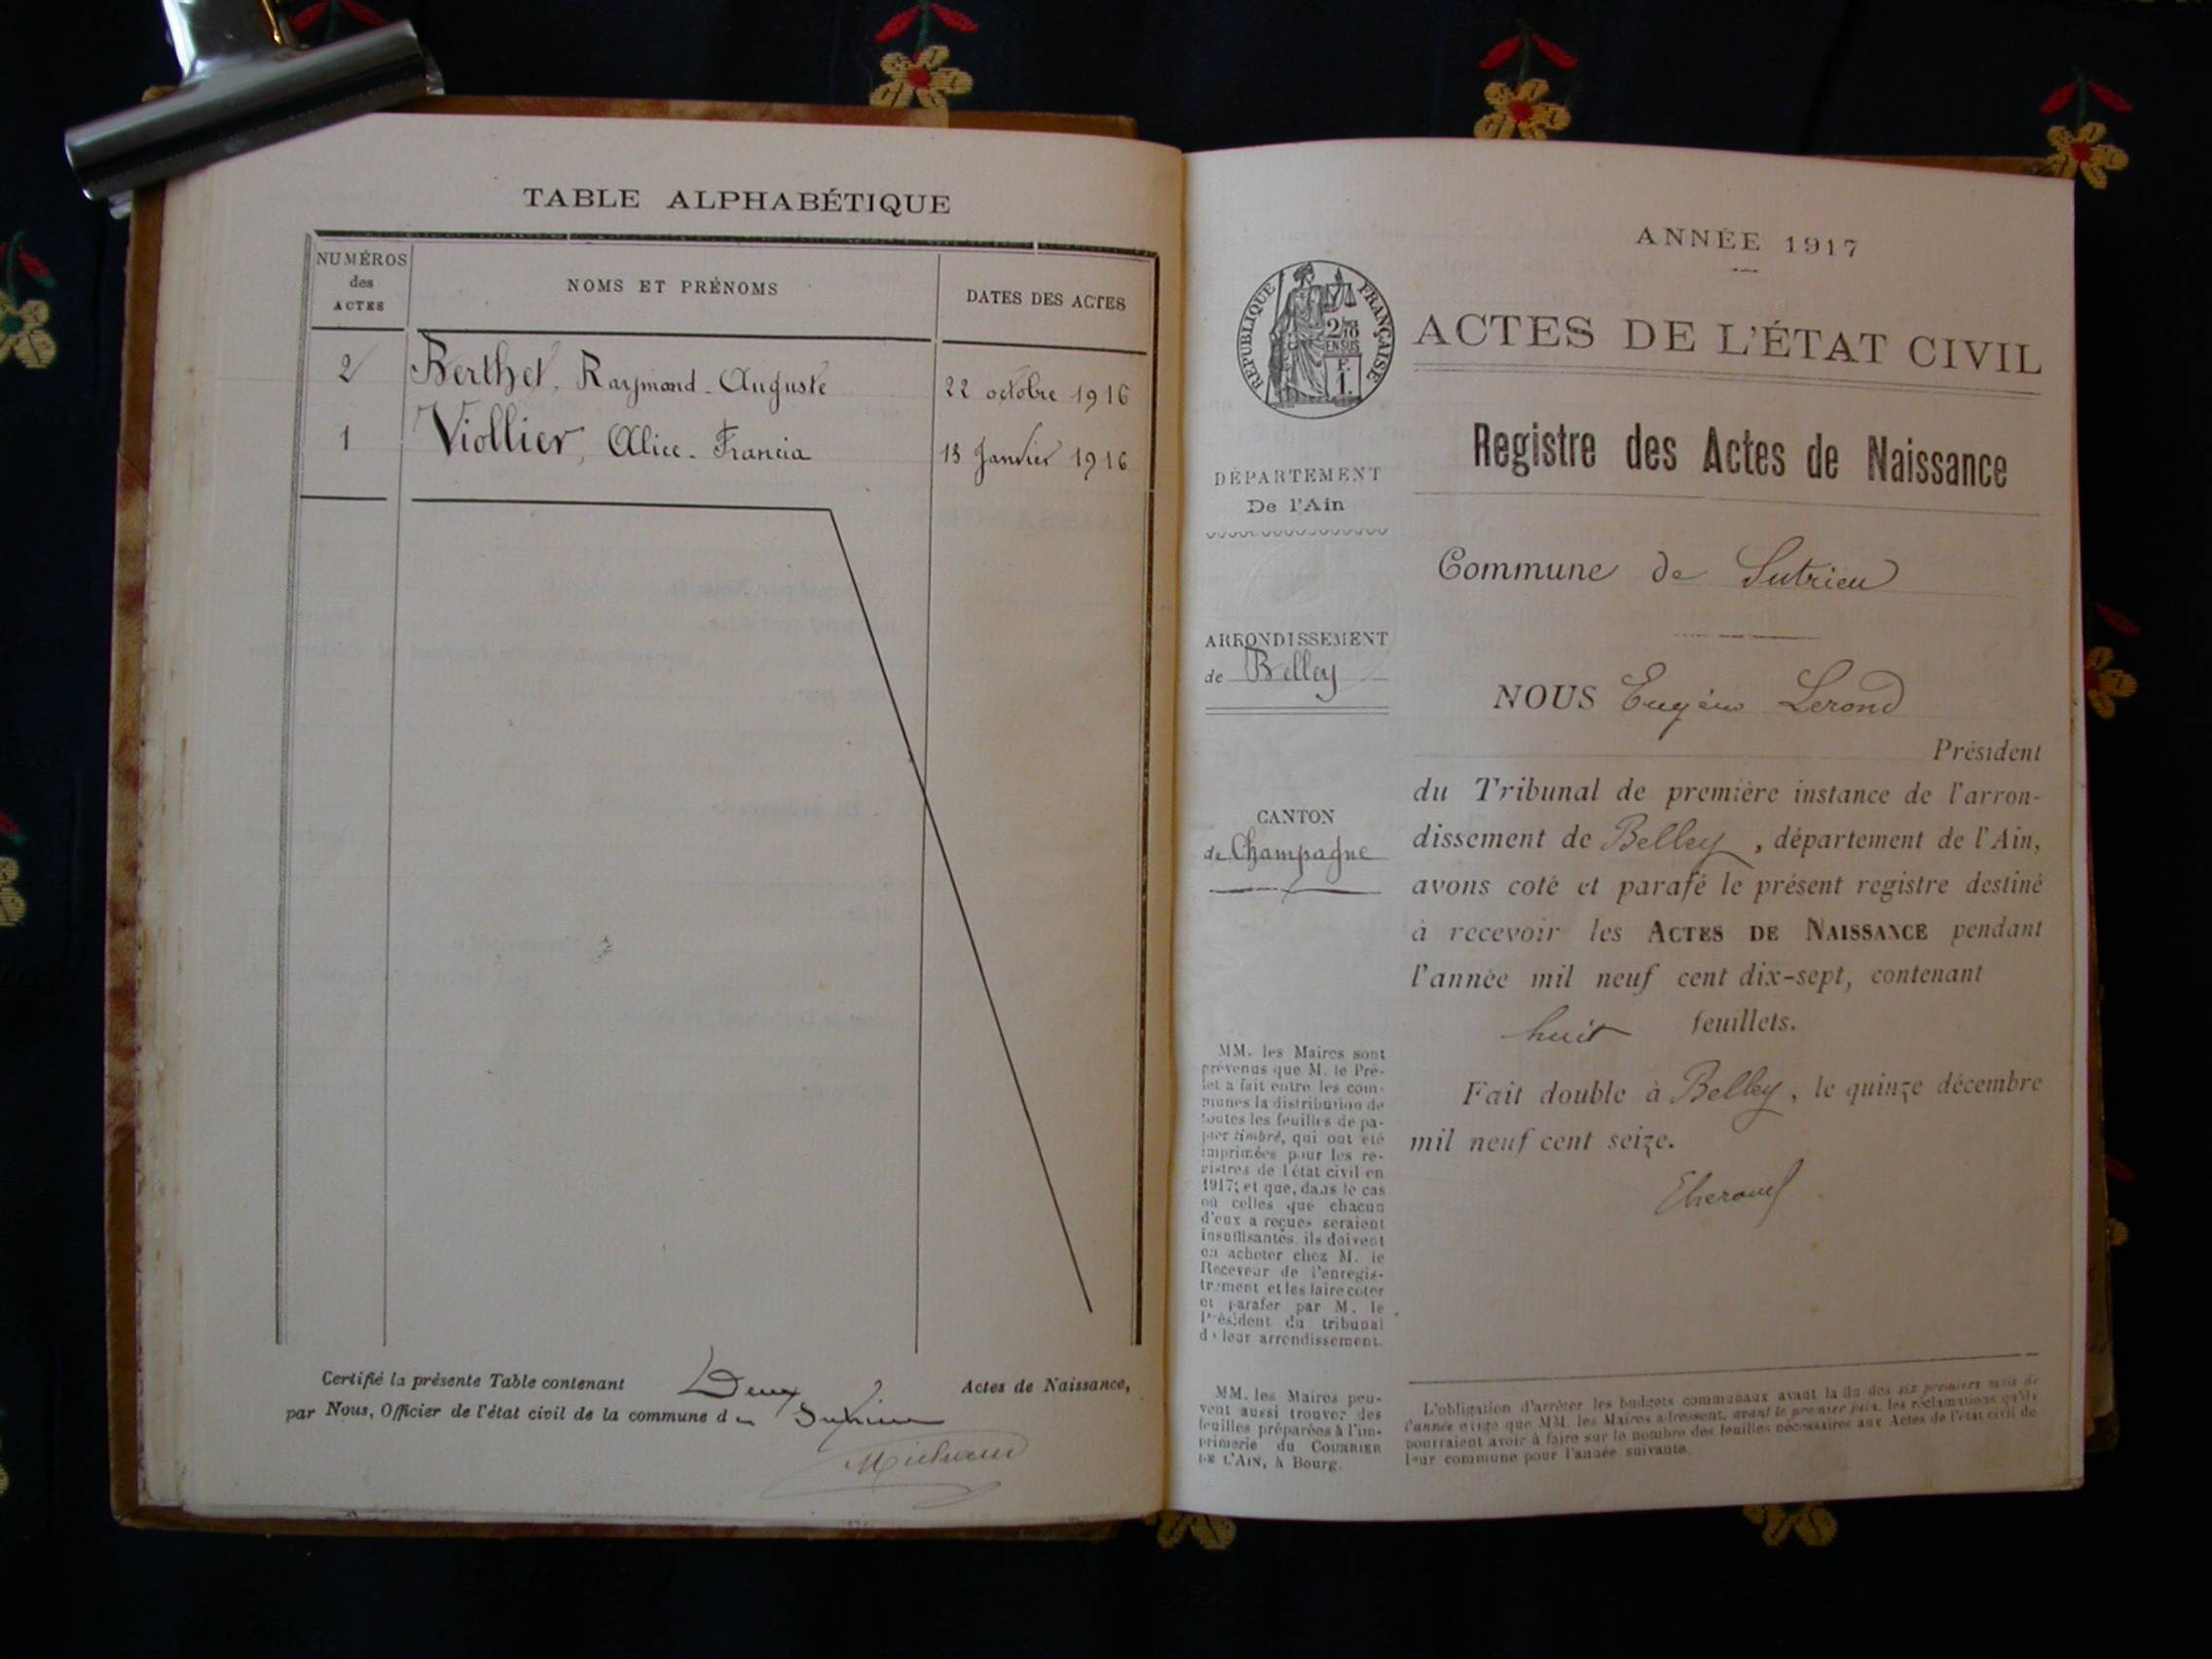 TABLE ALPHABÉTIQUE
NUMÉROS des ACTES
NOMS ET PRÉNOMS
DATES DES ACTES
2 Berthet, Raymond-Auguste 22 octobre 1916
1 Viollier, Alice-Francia 13 Janvier 1916
Certifié la présente Table contenant Deux Actes de Naissance,
par Nous, Officier de l'état civil de la commune de Sutrieu
ANNÉE 1917
RÉPUBLIQUE FRANÇAISE
ACTES DE L'ÉTAT CIVIL
Registre des Actes de Naissance
DÉPARTEMENT
De l'Ain
Commune de Sutrieu
ARRONDISSEMENT
de Belley
NOUS Eugène Lerond
Président
du Tribunal de première instance de l'arron-
dissement de Belley, département de l'Ain,
avons coté et parafé le présent registre destiné
à recevoir les ACTES DE NAISSANCE pendant
l'année mil neuf cent dix-sept, contenant
huit feuillets.
Fait double à Belley, le quinze décembre
mil neuf cent seize.
CANTON
de Champagne
MM. les Maires sont
prévenus que M. le Pré-
fet a fait entre les com-
munes la distribution de
toutes les feuilles de pa-
pier timbré, qui ont été
imprimées pour les re-
gistres de l'état civil en
1917; et que, dans le cas
où celles que chacun
d'eux a reçues seraient
insuffisantes, ils doivent
en acheter chez M. le
Receveur de l'enregis-
trement et les faire coter
et parafer par M. le
Président du tribunal
de leur arrondissement.
MM. les Maires peu-
vent aussi trouver des
feuilles préparées à l'im-
primerie du COURRIER
DE L'AIN, à Bourg.
L'obligation d'arrêter les budgets communaux avant la fin des six premiers mois de
l'année exige que MM. les Maires adressent, avant le premier juin, les réclamations qu'ils
pourraient avoir à faire sur le nombre des feuilles nécessaires aux Actes de l'état civil de
leur commune pour l'année suivante.